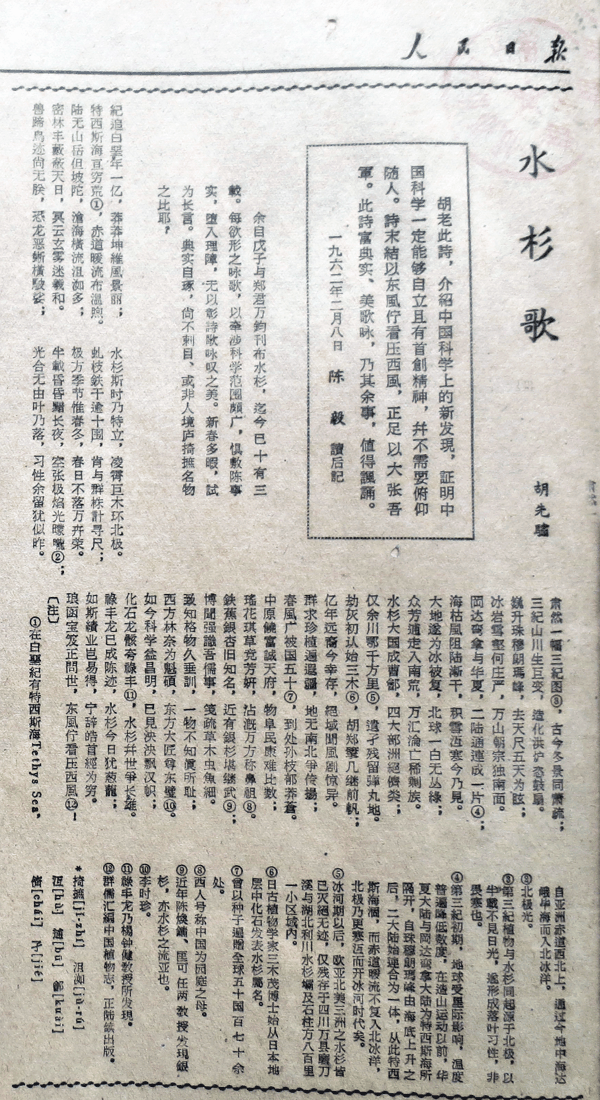 人民日报
水杉歌
胡先驌
胡老此詩，介紹中国科学上的新发現，証明中
国科学一定能够自立且有首創精神，并不需要俯仰
随人。詩末結以东風伫看压西風，正足以大张吾
軍。此詩富典实、美歌咏，乃其余事，值得諷誦。
一九六二年二月八日　陈　毅　讀后記
余自戊子与郑君万鈞刊布水杉，迄今已十有三
載。每欲形之咏歌，以牵涉科学范围頗广，惧敷陈事
实，堕入理障，无以彰詩歌咏叹之美。新春多暇，試
为长言。典实自琢，尙不刺目、或非人境庐掎摭名物
之比耶？
紀追白堊年一亿，莽莽坤維風景丽；
特西斯海亘穷荒①，赤道暖流布溫煦。
陆无山岳但坡陀，滄海橫流沮洳多；
密林丰薮蔽天日，冥云玄雾迷羲和。
兽蹄鳥迹尙无朕，恐龙恶蜥橫駊娑；
水杉斯时乃特立，凌霄巨木环北极。
虬枝鉄干逾十围，肯与群株計寻尺；
极方季节惟春冬，春日不落万卉荣。
半載昏昏黯长夜，空张极焰光朦朧②；
光合无由叶乃落，习性余留犹似昨。
肃然一幅三紀图③，古今冬景同萧疏；
三紀山川生巨变，造化洪炉恣鼓扇。
巍升珠穆朗瑪峰，去天尺五天为眩；
冰岩雪壑何庄严，万山朝宗独南面。
岡达弯拿与华夏，二陆通連成一片④；
海枯風阻陆渐干，积雪冱寒今乃見。
大地遂为冰被复，北球一白无丛綠；
众芳逋走入南荒，万汇淪亡稀剩族。
水杉大国成曹鄶，四大部洲絕儔类；
仅余川鄂千方里⑤，遺孑残留弹丸地。
劫灰初认始三木⑥，胡郑揅几继前軌；
亿年远裔今幸存，絕域聞風剧惊异。
群求珍植遍遐疆，地无南北爭传揚；
春風广被国五十⑦，到处孙枝郁莽蒼。
中原饒富誠天府，物阜民康难比数；
瑤花琪草竞芳妍，沾漑万方称鼻祖⑧。
鉄蕉銀杏旧知名，近有銀杉堪继武⑨；
博聞强識吾儒事，笺疏草木虫魚細。
致知格物久垂訓，一物不知眞所耻；
西方林奈为魁碩，东方大匠尊东壁⑩。
如今科学益昌明，已見泱泱飘汉帜；
化石龙骸夸祿丰⑪，水杉幷世爭长雄。
祿丰龙已成陈迹，水杉今日犹葱蘢；
如斯績业岂易得，宁辞皓首經为穷。
琅函宝笈正問世，东風伫看压西風⑫！
〔注〕
①在白堊紀有特西斯海Tethys Sea，
自亚洲赤道西北上，通过今地中海达
峨毕海而入北冰洋。
②北极光。
③第三紀植物与水杉同起源于北极，以
半載不見日光，遂形成落叶习性，非
畏寒也。
④第三紀初期，地球受星际影响，溫度
普遍降低数度，在造山运动以前，华
夏大陆与岡达弯拿大陆为特西斯海所
隔开，自珠穆朗瑪峰由海底上升之
后，二大陆始連合为一体，从此特西
斯海涸，而赤道暖流不复入北冰洋，
北极乃更寒冱而开冰河时代矣。
⑤冰河期以后，欧亚北美三洲之水杉皆
已灭絕无迹，仅残存于四川万县磨刀
溪与湖北利川水杉壩及石柱方八百里
一小区域內。
⑥日古植物学家三木茂博士始从日本地
层中化石发表水杉屬名。
⑦曾以种子遍贈全球五十国百七十余
处。
⑧西人号称中国为园庭之母。
⑨近年陈煥鏞、匡可任两教授发現銀
杉，亦水杉之流亚也。
⑩李时珍。
⑪祿丰龙乃楊钟健教授所发現。
⑫群儒汇編中国植物志，正陆續出版。
*掎摭[jǐ-zhí]　沮洳[jù-rú]
冱[hù]　鄶[kuài]
儕[chái]　孑[jié]